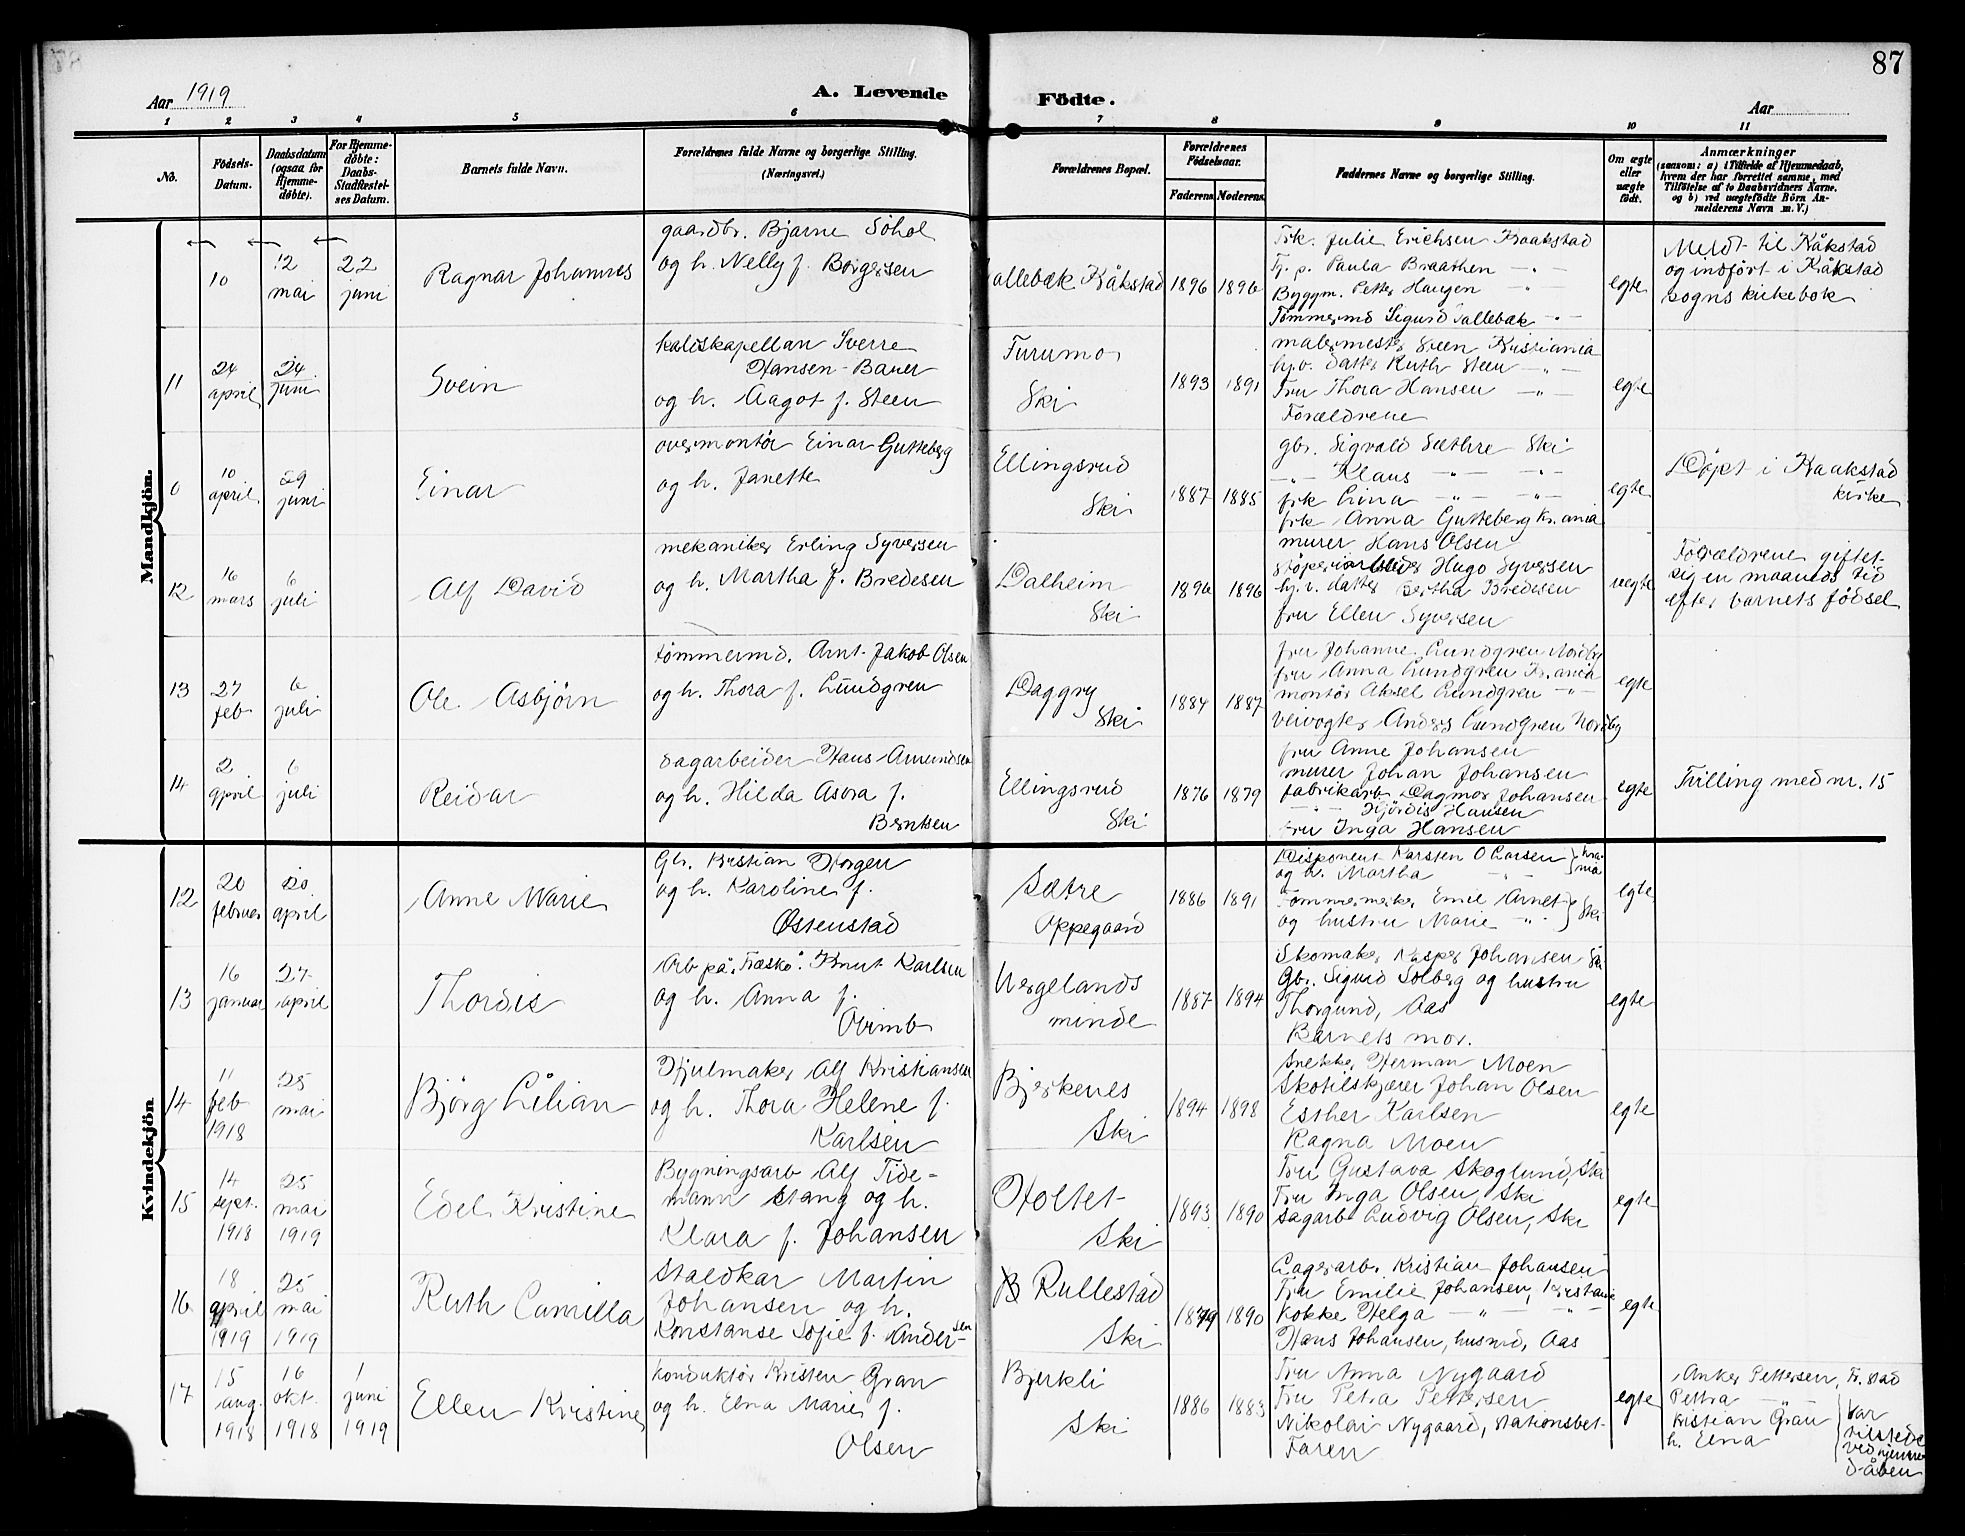 87
Aar 1919
A. Levende
Födte.
Aar
1 2 3 4 5 6 7 8 9 10 11
No.
Födsels-
Datum.
Daabsdatum
(ogsaa for
Hjemme-
døbte).
For Hjemme-
døbte:
Daabs-
Stadfæstel-
ses Datum.
Barnets fulde Navn.
Forældrenes fulde Navne og borgerlige Stilling.
(Næringsvei.)
Forældrenes Bopæl.
Forældrenes
Födselsaar.
Faderens. Moderens.
Faddernes Navne og borgerlige Stilling.
Om ægte
eller
uægte
født.
Anmærkninger
(saasom: a) i Tilfælde af Hjemmedaab,
hvem der har forrettet samme, med
Tilföielse af to Daabsvidners Navne.
og b) ved uægtefödte Börn An-
melderens Navn m. V.)
Mandkjön.
10
12
mai
22
juni
Ragnar Johannes
gaardbr. Bjarne Sohol
og h. Nelly f. Borgersen
allebæk Kråkstad
1896
1896
Frk. Julie Erichsen Kraakstad
Tj. p. Paula Braathen - " -
Byggm. Petter Haugen - " -
Tømmermd Sigurd Sallebæk - " -
egte
Meldt til Kråkstad
og indført i Kråkstad
sogns kirkebok
11
24
april
24
juni
Svein
Kallskapellan Sverre
Hansen-Bauer
og h. Aagot f. Steen
Furumo
Ski
1893
1891
malermester Steen Kristiania
hj.v. datter Ruth Steen - " -
Fru Thora Hansen - " -
Forældrene
egte
0
10
april
29
juni
Einar
overmontør Einar Gutteberg
og h. Janette
Ellingsrud
Ski
1887
1885
gbr. Sigvald Sæthre Ski
- " - Klaus - " - - " -
frk Lina - " - - " -
frk Anna Gutteberg Kr.ania
egte
Døpt i Kraakstad
kirke
12
16
mars
6
juli
Alf David
mekaniker Erling Syversen
og h. Martha f. Bredesen
Dalheim
Ski
1896
1896
murer Hans Olsen
støperiarbeider Hugo Syversen
hj. v. datter Bertha Bredesen
fru Ellen Syversen
uegte
Forældrene giftet
sig en maaneds tid
efter barnets fødsel
13
27
feb
6
juli
Ole Asbjörn
tömmermd. Arnt Jakob Olsen
og h. Thora f. Lundgren
Daggry
Ski
1884
1887
fru Johanne Lundgren Nordby
fru Anna Lundgren Kr.ania
montör Aksel Lundgren - " -
veivogter Anders Lundgren Nordby
egte
14
2
april
6
juli
Reidar
sagarbeider Hans Amundsen
og h. Hilda Asora f.
Berntsen
Ellingsrud
Ski
1876
1879
fru Anne Johansen
murer Johan Johansen
fabrikarb. Dagmar Johansen
- " - Hjördis Hansen
fru Inga Hansen
egte
Tvilling med nr. 15
Kvindekjön
12
20
februar
20
april
Anne Marie
Gb. Kristian Horgen
og h. Karoline f.
Østenstad
Sætre
Oppegaard
1886
1891
Disponent Karsten O Larsen
og h. Martha - " -
Kra-
nia
Tømmermester Emil Arnet
og hustru Marie " -
Ski
egte
13
16
januar
27
april
Thordis
Arb på "Træsko". Knut Karlsen
og h. Anna f.
Wergelands
minde
1887
1894
Skomaker Kasper Johansen Ski
Gbr. Sigurd Solberg og hustru
Thorgund, Aas
Barnets mor.
egte
14
11
feb
1918
25
mai
Björg Lilian
Hjulmaker Alf Kristiansen
og h. Thora Helene f.
Karlsen
Bjerkenes
Ski
1894
1898
Snekker Herman Moen
Skotilskjærer Johan Olsen
Esther Karlsen
Ragna Moen
egte
15
14
sept.
1918
25
mai
1919
Edel Kristine
Bygningsarb Alf Tide-
mann Stang og h.
Klara f. Johansen
Holtet
Ski
1893
1890
Fru Gustava Skoglund, Ski
Fru Inga Olsen, Ski
Sagarb Ludvig Olsen, Ski
egte
16
18
april
1919
25
mai
1919
Ruth Camilla
Staldkar Martin
Johansen og h.
Konstanse Sofie f. Andersen
Rullestad
Ski
1879
1890
Lagerarb. Kristian Johansen
Fru Emilie Johansen, Kristiania
Kokke Helga - " - - " -
Hans Johansen, husmd, Aas
egte
17
15
aug.
1918
16
okt.
1918
1
juni
1919
Ellen Kristine
Konduktör Kristen Gran
og h. Elna Marie f.
Olsen
Bjerkli
Ski
1886
1883
Fru Anna Nygaard
Fru Petra Pettersen
Nikolai Nygaard, stationsbet.
Faren
egte
Anker Pettersen, Fr.stad
Petra - " -
Kristian Gran
h. Elna
var
tilstede
ved hjemme-
dåben